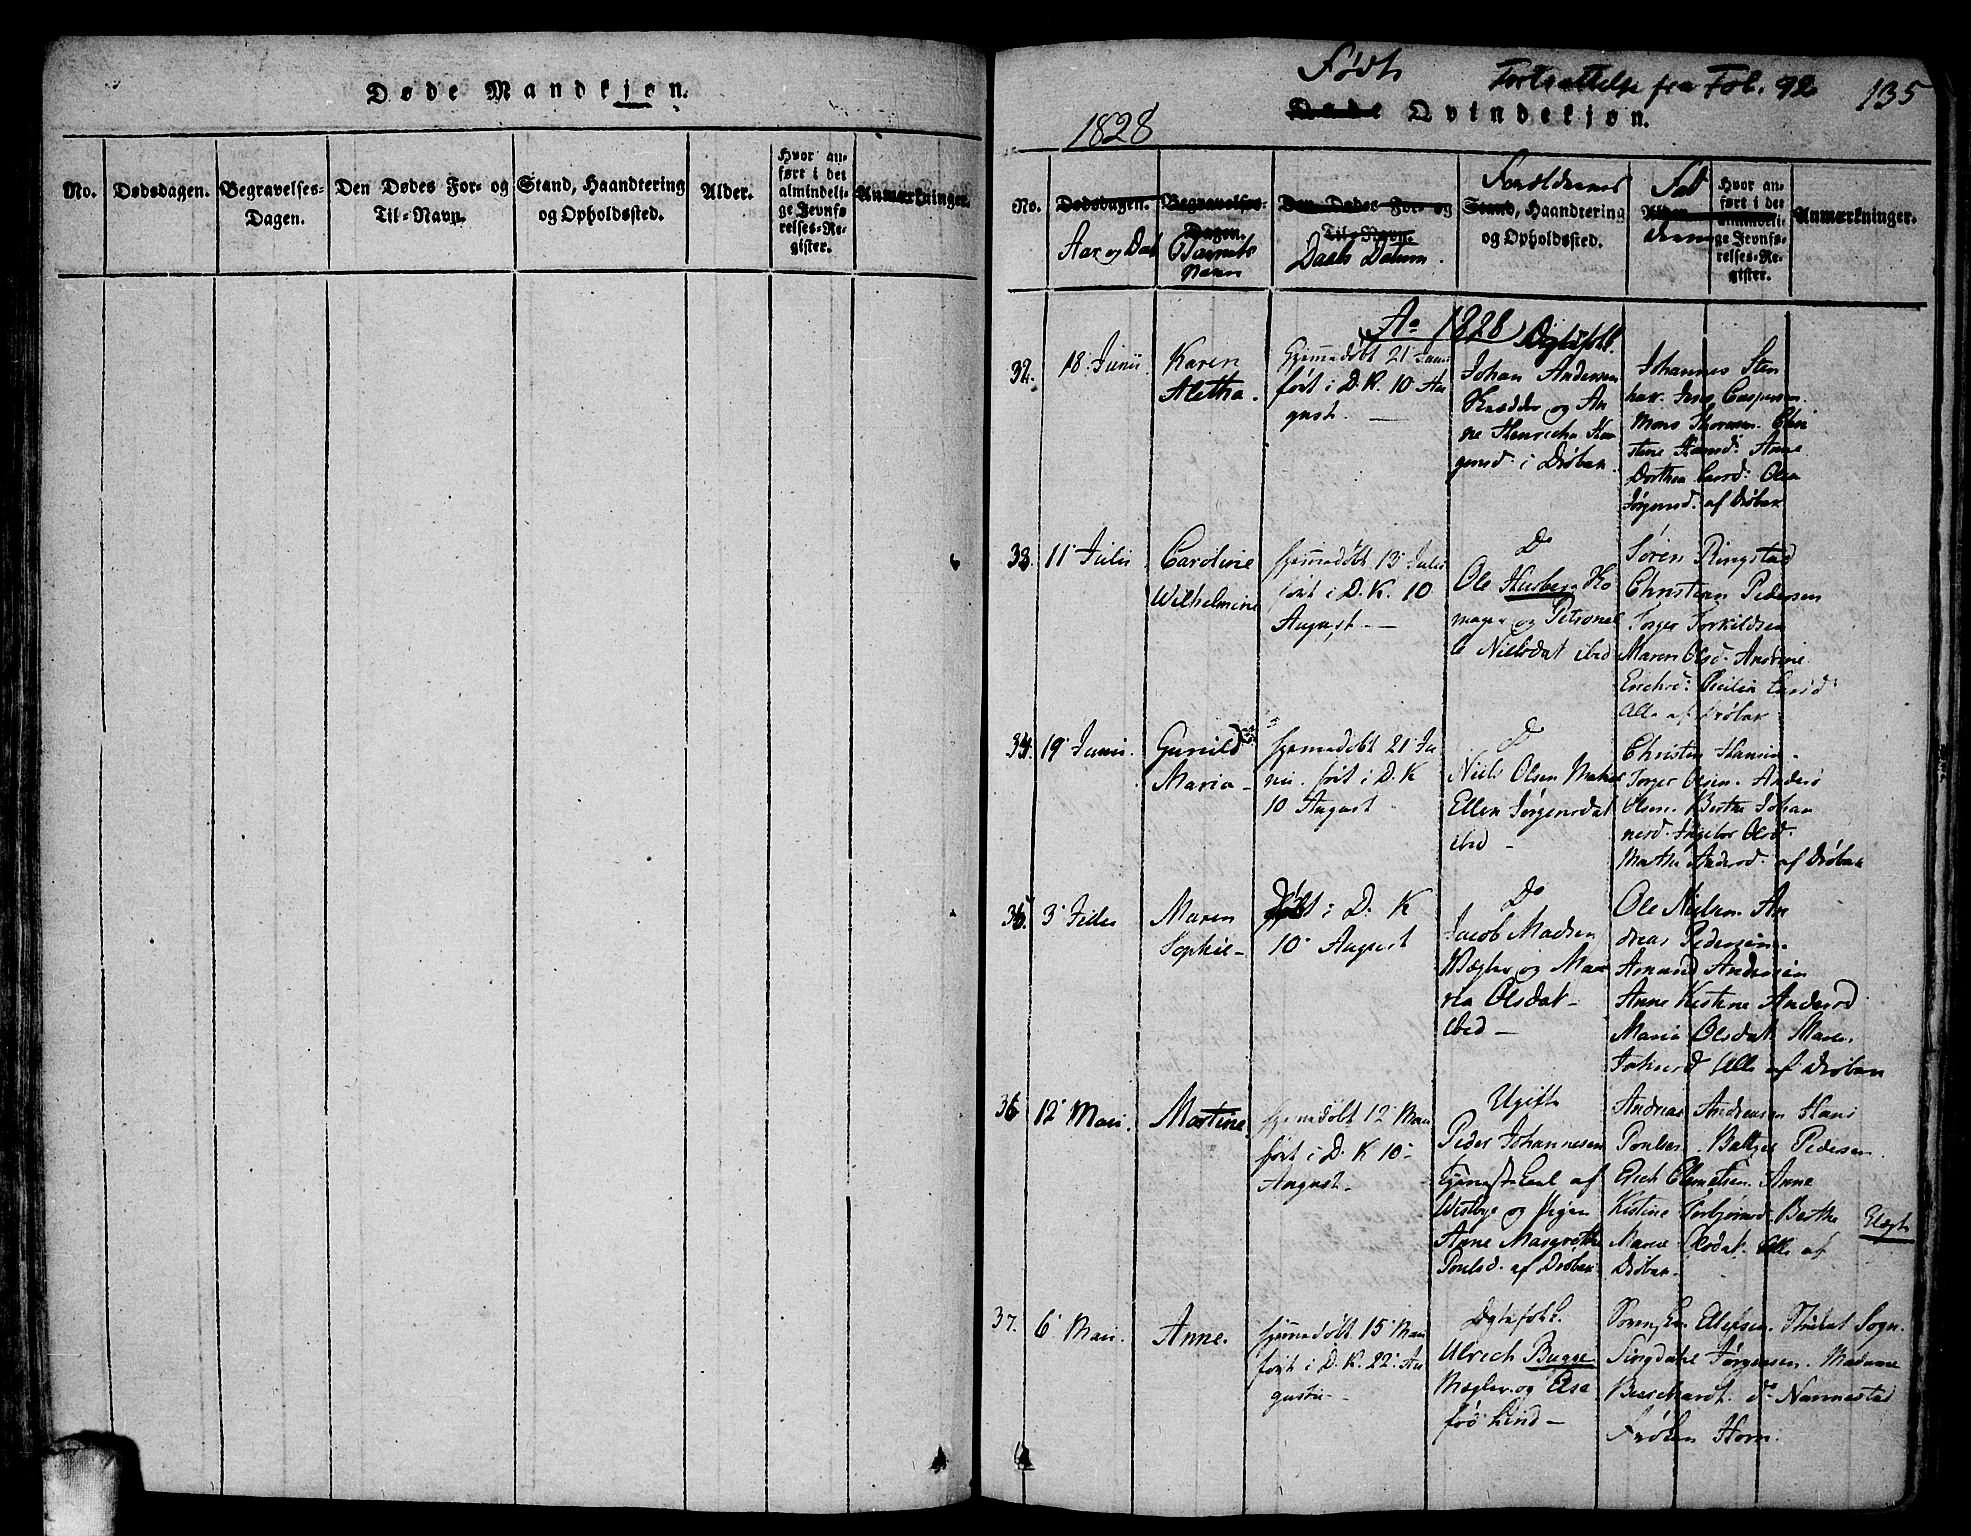 Døde Mandkjøn.
No.
Dødsdagen.
Begravelses-
Dagen.
Den Dødes For- og
Til-Navn.
Stand, Haandtering
og Opholdssted.
Alder.
Hvor an-
ført i det
almindeli-
ge Jevnfø
relses-Re-
gister.
Anmærkninger.
Født Fortsættelse fra Fol. 92 135
1828
Døde Qvindekjøn.
No.
Dødsdagen.
Aar og Dat
Begravelses-
Dagen.
Barnets
Navn
Den Dødes For- og
Til-Navn.
Daabs Datum.
Forældrenes
Stand, Haandtering
og Opholdssted.
Alder.
Hvor an-
ført i det
almindeli-
ge Jevnfø-
relses-Re-
gister.
Anmærkninger.
Ao 1828
32.
18 Junii
Karen
Aletha.
Hjemmedøbt 21 Junii
ført i D. K. 10 Au
gust. —
Ægtefolk.
Johan Andersen
Skrædder og An
ne Henricha Haa
gensd: i Drøbak.
Johannes Sten
hav. Jens Caspersen.
Mons Thoresen. Chri
stine Hansd: Anne
Dorthea Larsd: Olea
Jørgensd. af Drøbak
33.
11 Julii
Caroline
Wilhelmine
hjemmedøbt 13 Julii
ført i D. K. 10
August. —
Do
Ole Husberg Sko
mager og Petronel
le Nielsdat ibid
Søren Ringstad
Christian Pedersen
Torger Torkildsen
Maren Olsd. Andrine
Erichsd: Cicilia Larsd:
Alle af Drøbak
34.
19 Junii.
Gunild
Maria —
hjemmedøbt 21 Ju
nii. ført i D. K
10 August
Do
Niels Olsen Matros
Ellen Jørgensdat
ibid —
Christen Hansen.
Torger Olsen. Anders
Olsen. Berthe Johan
nesd. Ingebor Olsd.
Marthe Andersd. af Drøbak
35.
3 Julii
Maren
Sophie —
Døbt i D. K
10 August
Do
Jacob Madsen
Mægler og Ma
ria Olsdat —
ibid —
Ole Nielsen. An
dreas Pedersen.
Amund Andersen
Anne Kistine Andersd
Maria Olsdat. Maren
Johnsd Alle af Drøbak
36
12 Maii.
Martine
hjemmedøbt 12 Maii
ført i D. K 10
August —
Ugifte
Peder Johannesen
Tjeneste Karl af
Wistbye og Pigen
Anne Margrethe
Poulsd. af Drøbak
Andreas Andreasen Hans
Poulsen. Baltzer Pedersen.
Erich Clemetsen. Anne
Kistine Torbjørnsd. Berthe
Marie Olsdat. Alle af
Drøbak.
Uægte
37.
6 Maii.
Anne.
hjemmedøbt 15 Maii
ført i D. K. 22 Au
gusti —
Ægtefolk.
Ulrich Bugge
Mægler og Else
født Lind —
Sorenskr. Ellefsen. Studiat Sogn.
Singdahl Jørgensen. Madame
Burchardt. do Nannestad
Frøken Horn.